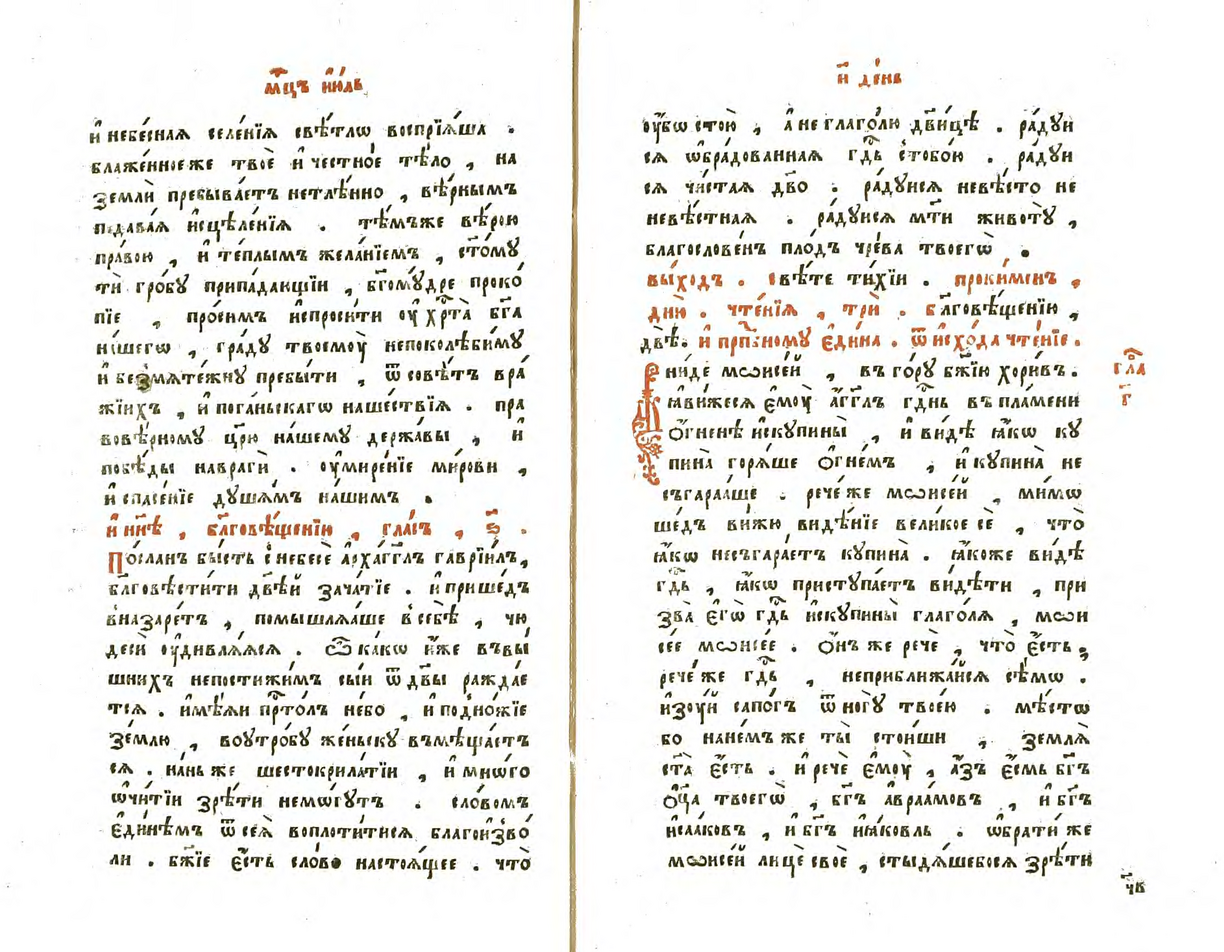 мц҃ъ їю́ль
и҆ небе́сная селе́нїѧ свѣ́тлѡ воспрїѧ́ша .
блаже́нное же твоѐ и҆ честно́е тѣ́ло , на
землѝ пребыва́етъ нетлѣ́нно , вѣ́рнымъ
подава́ѧ и҆сцѣле́нїѧ . тѣ́мъже вѣ́рою
пра́вою , и҆ те́плымъ жела́нїемъ , ст҃о́му
тѝ гро́бꙋ припа́дающїи , бг҃ому́дре проко́
пїе , про́симъ и҆спроси́ти ᲂу҆ хрⷭ҇та̀ бг҃а
на́шегѡ , гра́дꙋ твоемᲂу̀ непоколѣ́бимꙋ
и҆ безмѧте́жнꙋ пребы́ти , ѿ совѣ́тъ вра́
жїихъ , и҆ пога́ньскагѡ наше́ствїѧ . пра
вовѣ́рномꙋ цр҃ю̀ на́шемꙋ держа́вы , и҆
побѣ́ды на врагѝ . ᲂу҆мире́нїе ми́рови ,
и҆ спасе́нїе дꙋша́мъ на́шимъ .
и҆ нн҃ѣ , бл҃говѣ́щенїю , гла́съ , ѕ҃ .
По́сланъ бы́сть с небесѐ а҆рха́гг҃лъ гаврїи́лъ ,
бл҃говѣсти́ти дв҃ѣй зача́тїе . и҆ прише́дъ
в назаре́тъ , помышлѧ́ше в себѣ̀ , чю
десѝ ᲂу҆дивлѧ́ѧсѧ . ѽ ка́кѡ и҆́же въ вы́
шнихъ непостижи́мъ сы́и ѿ дв҃ы ражда́е
тсѧ . и҆мѣ́ѧи прⷭ҇то́лъ не́бо , и҆ подно́жїе
зе́млю , во ᲂутро́бꙋ же́ньскꙋ въмѣща́етъ
сѧ . на́нь же шестокрила́тїи , и҆ мнѡ́го
ѻ҆чи́тїи зрѣ́ти не мо́гꙋтъ . сло́вомъ
є҆ди́нѣмъ ѿ сеѧ̀ воплоти́тисѧ благои҆зво́
ли . бж҃їе є҆́сть сло́во настоѧ́щее . что̀
и҃ де́нь
ᲂу҆́бѡ стою̀ , а҆ не глаго́лю дв҃и́цѣ . ра́дꙋи
сѧ ѡ҆бра́дованнаѧ гдⷭ҇ь с тобо́ю . ра́дꙋи
сѧ чи́стаѧ дв҃о . ра́дꙋисѧ невѣ́сто не
невѣ́стнаѧ . ра́дꙋисѧ мт҃и животꙋ̀ ,
благослове́нъ пло́дъ чре́ва твоегѡ̀ .
вы́ходъ . свѣ́те ти́хїи . проки́менъ ,
дню̀ . чте́нїѧ , трѝ . бл҃говѣ́щенїю ,
двѣ̀. и҆ прпⷣбномꙋ є҆ди́на . ѿ и҆схо́да чте́нїе .
Вни́де мѡи҆се́й , въ го́рꙋ бж҃їю хори́въ .
глава̀ г҃
ꙗ҆ви́жесѧ є҆мᲂу̀ а҆́гг҃лъ гдⷭ҇нь въ пла́мени
ѻ҆́гненѣ и҆скꙋпины̀ , и҆ ви́дѣ ꙗ҆́кѡ кꙋ
пина̀ горѧ́ше ѻ҆гне́мъ , и҆ кꙋпина̀ не
съгара́аше . рече́ же мѡи҆се́й , ми́мѡ
ше́дъ ви́жю видѣ́нїе вели́кое сѐ , что̀
ꙗ҆́кѡ не съгара́етъ кꙋпина̀ . ꙗ҆́коже ви́дѣ
гдⷭ҇ь , ꙗ҆́кѡ пристꙋпа́етъ ви́дѣти , при
зва̀ є҆го̀ гдⷭ҇ь и҆скꙋпины̀ глаго́лѧ , мѡи
се́е мѡи҆се́е . ѻ҆́нъ же речѐ , что̀ є҆́сть ;
рече́ же гдⷭ҇ь , не приближа́йсѧ сѣ́мѡ .
и҆зᲂу́й сапо́гъ ѿ ногꙋ̀ твоє́ю . мѣ́стѡ
бо на не́мъ же ты̀ стои́ши , землѧ̀
ст҃а є҆́сть . и҆ речѐ є҆мᲂу̀ , а҆́зъ є҆́смь бг҃ъ
ѻ҆ц҃а̀ твоегѡ̀ , бг҃ъ а҆враа́мовъ , и҆ бг҃ъ
и҆саа́ковъ , и҆ бг҃ъ и҆а́ковль . ѡ҆брати́ же
мѡи҆се́й лицѐ своѐ , стыдѧ́шебосѧ зрѣ́ти
чв